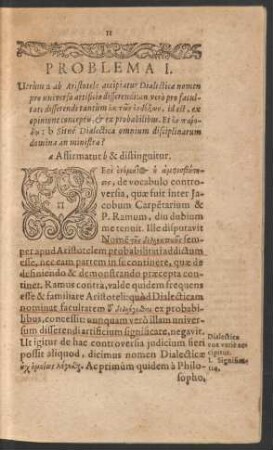 II
PROBLEMA I.
Utrùm a ab Aristotele accipiatur Dialecticæ nomen
pro universo artificio disserendi: an verò pro facul-
tate disserendi tantùm ἐκ τῶν ἐνδόξων, id est, ex
opinione conceptu, & ex probabilibus. Et
b Sitné Dialectica omnium disciplinarum
domina an ministra?
a Affirmatur b & distinguitur.
de vocabulo contro-
versia, quæ fuit inter Ja-
cobum Carpētarium &
P. Ramum, diu dubium
me tenuit. Ille disputavit
Nomē sem-
per apud Aristotelem probabilitati addictum
esse, nec eam partem in se continere, quæ de
definiendo & demonstrando præcepta conti-
net. Ramus contrà, valde quidem frequens
esse & familiare Aristoteli: quòd Dialecticam
nominat facultatem ex proba-
bilibus, concessit: unquam verò illam univer-
sum disserendi artificium significare, negavit.
Ut igitur de hac controversia judicium fieri
possit aliquod, dicimus nomen Dialecticæ
Ac primùm quidem à Philo-
sopho,
Dialectica
quotuariè ac-
cipitur.
1. Significa-